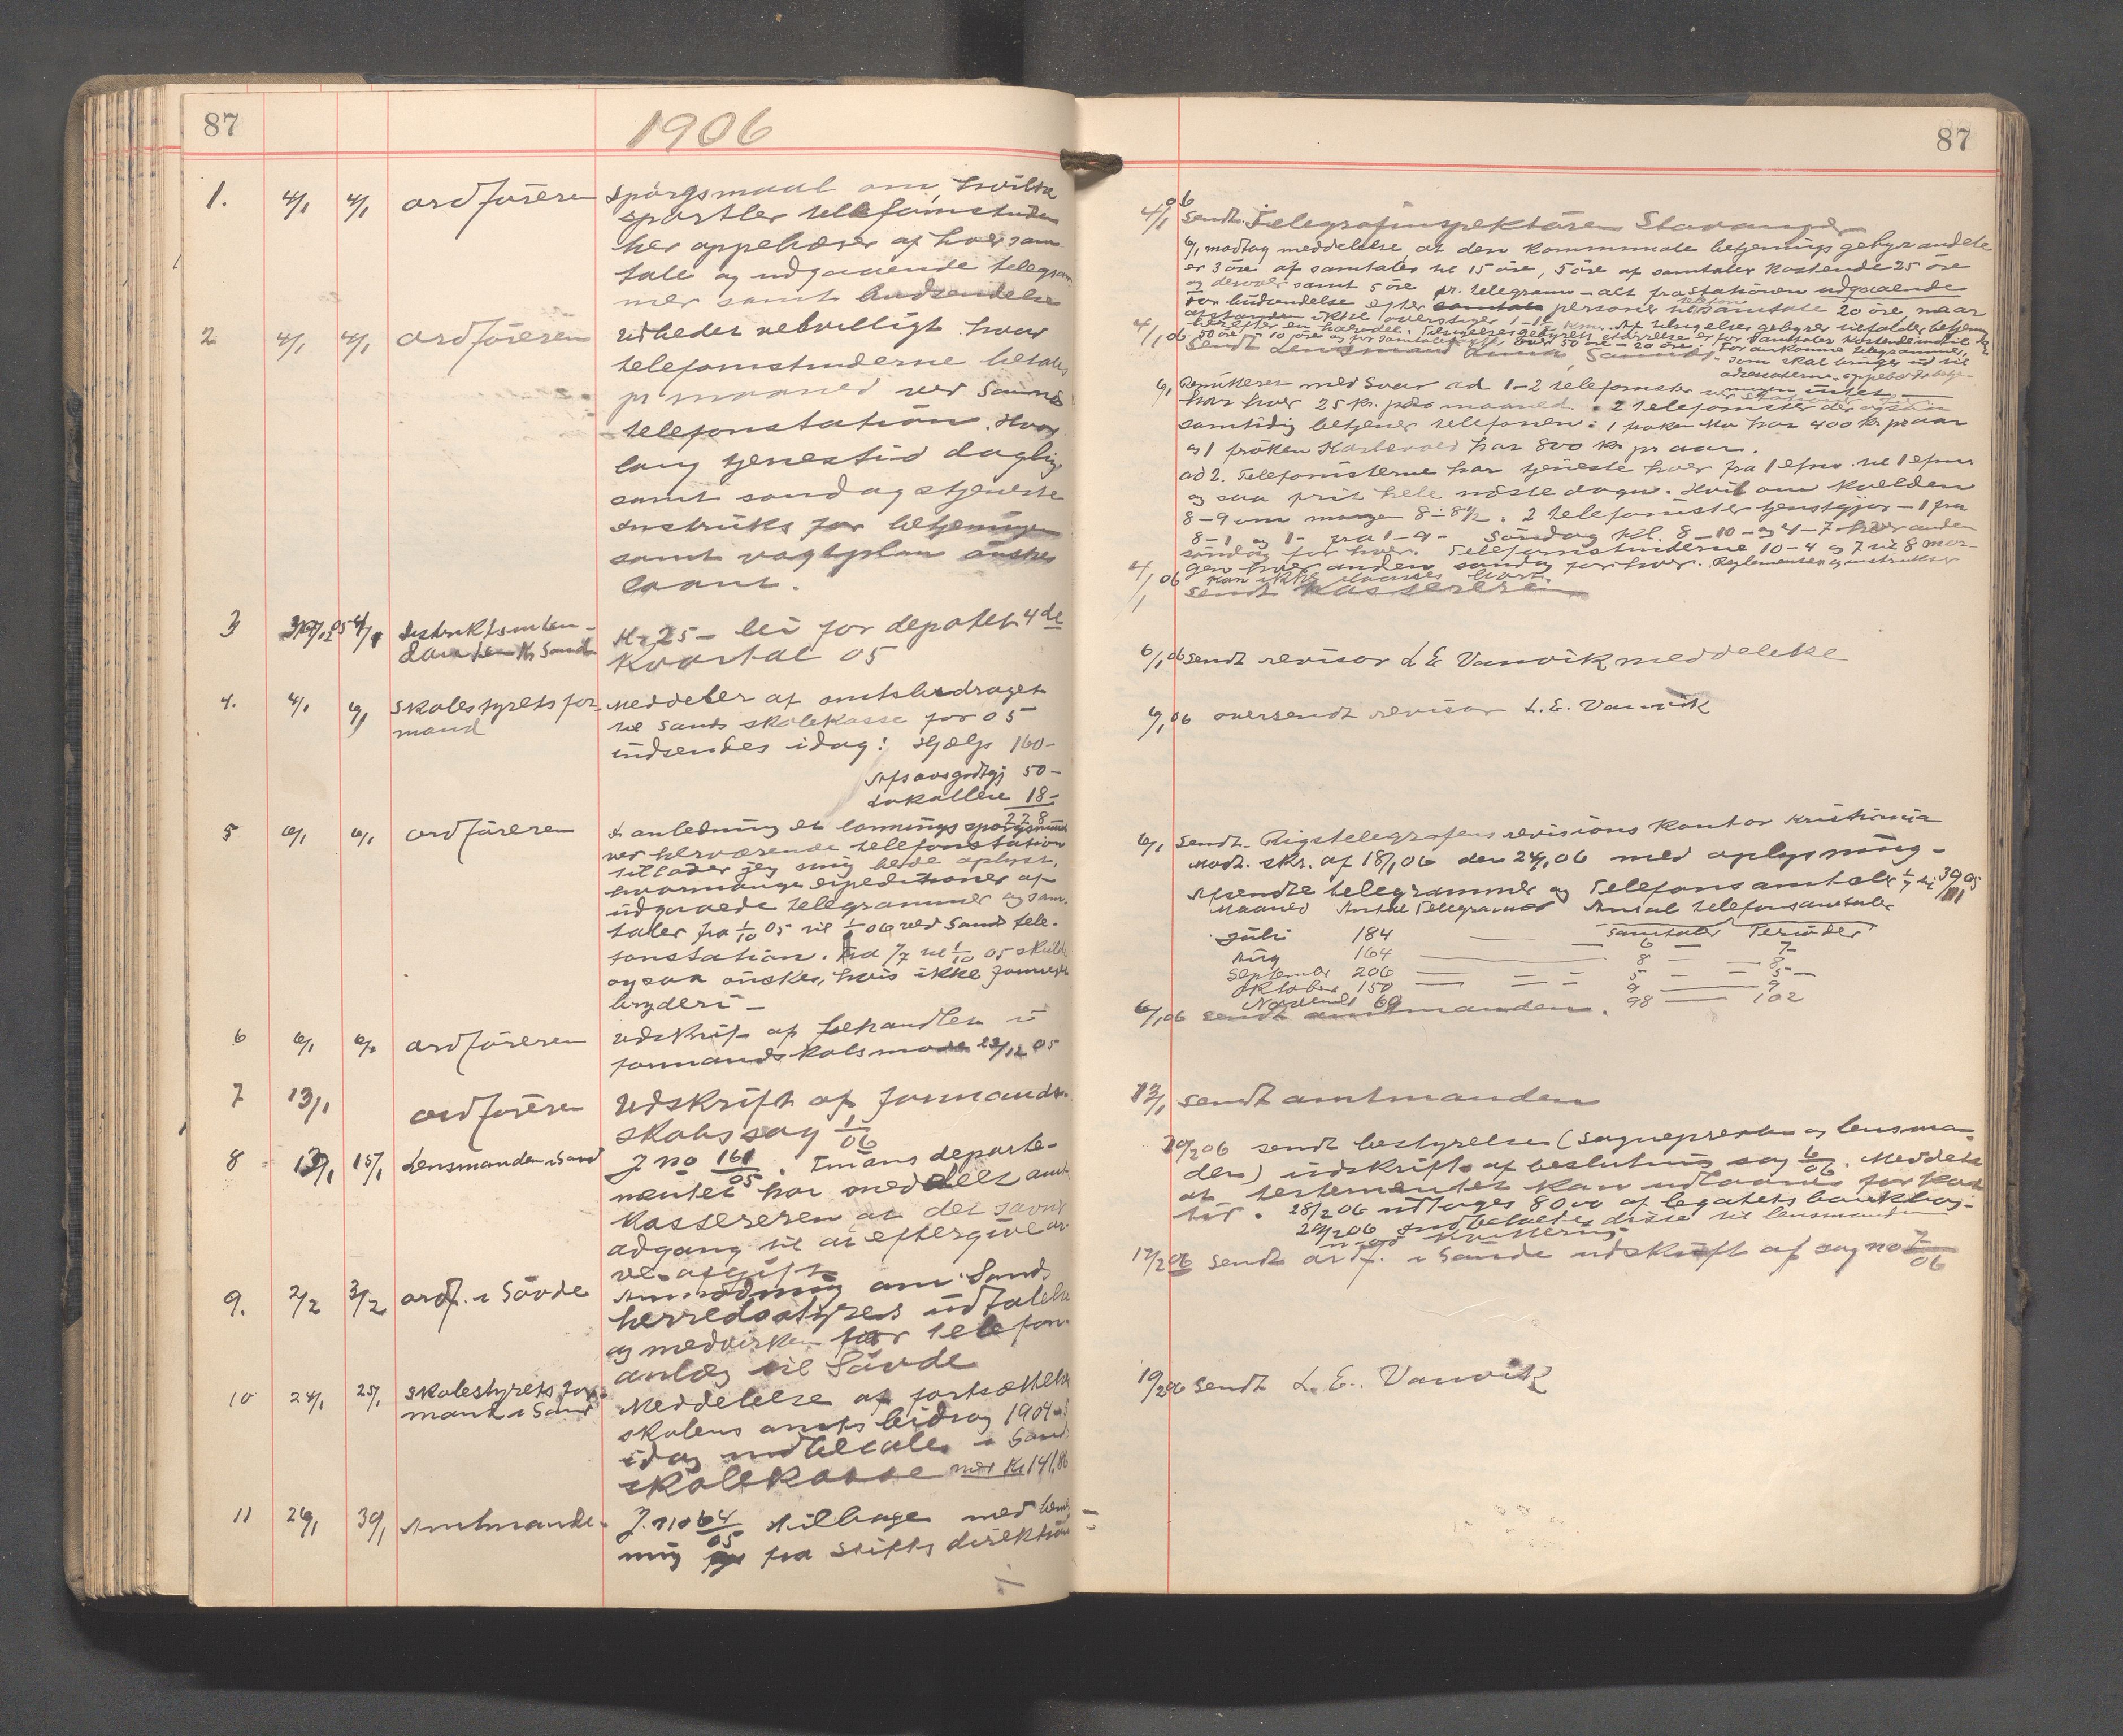 87
1906
1. 4/1 4/1 ordføreren Spørgsmaal om, hvilke
sportler telefonistinden
her oppebærer af hver sam-
tale og udgaaende telegram-
mer samt budsendelse
2 4/1 4/1 ordføreren Udbedes velvilligt hvad
telefonistinderne betales
pr maaned ved
telefonstation. Hvor
lang tjenestid daglig
samt søndagstjeneste
Instruks for betjeningen
samt vagtplan ønskes
laant.
3 05 4/1 Distriktsinten-
danten Kr Sand
Kr 25 – leie for depotet 4de
Kvartal 05
4. 4/1 6/1 Skolestyrets for-
mand
Meddeler at amtsbidraget
til Sands skolekasse for 05
indsendes idag: Hjælp 160 –
Afsavsgodtgj 50 –
Lokalleie 18 –
228
5 6/1 6/1 ordføreren I anledning et lønningsspørgsmaal
ved herværende telefonstation
tillader jeg mig bede oplyst,
hvormange expeditioner af
udgaaede telegrammer og sam-
taler fra 1/10 05 til 1/1 06 ved Sand tele-
fonstation. Fra 1/7 til 1/10 05 skulde
ogsaa ønskes, hvis ikke formeget
bryderi –
6 6/1 6/1 ordføreren Udskrift af behandlen i
formandskabsmøde 22/12 05
7 13/1 ordføreren Udskrift af formands-
skabssag 1/06
8 13/1 15/1 Lensmanden i Sand J no 161/05. Finans departe-
mentet har meddelt amt-
kassereren at det savner
adgang til at eftergive ar-
veafgift
9. 2/2 3/2 ordf. i Søvde Anmodning om Sands
herredsstyres udtalelse
og medvirken for telefon-
anlæg til Søvde
10 24/1 25/1 Skolestyrets for-
mand i Sand
Meddelelse at fortsættelses
skolens amtsbidrag 1904-5
idag indbetales i Sand
skolekasse med Kr 141,86
11 29/1 30/1 Amtmanden J. no 64/05 tilbage med bemærk-
ning fra Stiftsdirektionen
87
4/1 06 Sendt Telegrafinspektøren Stavanger
6/1 modtag meddelelse, at den kommunale betjenings gebyr andele
er 3 øre af samtaler til 15 øre, 5 øre af samtaler kostende 25 øre
og derover samt 5 øre pr. telegram – alt fra Stationen udgaaende
For budsendelse efter personer til telefon samtale 20 øre, naar
afstanden ikke overstiger
4/1 06 Sendt Lensmand
som skal bringes ud til
6/1 med Svar ad 1-2 telefonister
har hver 25 kr. pr maaned. 2 telefonister der ogsaa
samtidig betjener telefonen: 1 frøken Mo har 400 kr pr aar
og 1 frøken har 800 kr pr aar.
ad 2. Telefonisterne har tjeneste hver fra 1 efm. til 1 efm
og saa frit hele næste døgn. Hvil om kvelden
8-9 om morgen 8-8½. 2 telefonister tjenstgjør – 1 fra
8-1 og 1- fra 1-9 - Søndag kl. 8-10- og 4-7 hver anden
søndag for hver. Telefonistinderne 10-4 og 7 til 8 mor-
gen hver anden søndag for hver. Reglementer og instrukser
kan ikke laanes bort.
4/1 06 Sendt Kassereren
6/1 06 Sendt revisor L E Vanvik meddelelse
6/1 06 oversendt revisor L. E. Vanvik
6/1 Sendt Rigstelegrafens revisions kontor Kristiania
Modt. skr. af 18/1 06 den 24/1 06 med oplysning –
Afsendte telegrammer og Telefonsamtaler
Maaned Antal Telegrammer Antal telefonsamtaler
Samtaler Perioder
Juli 184 — 6 — 7 –
Aug 164 — 8 — 8 –
September 206 — 5 — 5 –
Oktober 150 — 9 — 9
November 69 98 — 102
6/1 06 sendt amtmanden.
13/1 Sendt amtmanden
10/2 06 sendt bestyrelsen (sognepresten og lensman-
den) udskrift af beslutning sag 6/06. Meddelt
at testementet kan udlaanes for kort
tid. 28/2 06 udtages 8000 af legatets bankbog.
28/2 06 Indbetaltes disse til lensmanden
mod kvittering
12/2 06 Sendt ordf. i Søvde udskrift af sag no 7/06
19/2 06 Sendt L. E. Vanvik